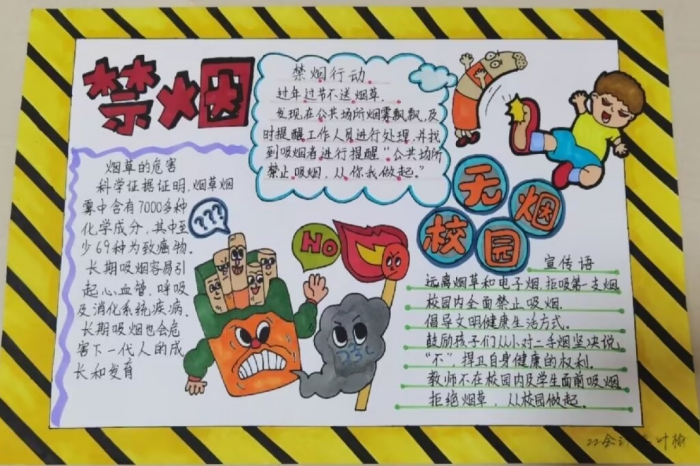 禁烟
烟草的危害
科学证据证明,烟草烟
雾中含有7000多种
化学成分,其中至
少69种为致癌物。
长期吸烟容易引
起心血管,呼吸
及消化系统疾病。
长期吸烟也会危
害下一代人的成
长和发育
禁烟行动
过年过节不送烟草。
发现在公共场所烟雾飘飘,及
时提醒工作人员进行处理,并找
到吸烟者进行提醒“公共场所
禁止吸烟,从你我做起。”
???
NO
无烟
校园
宣传语
远离烟草和电子烟,拒吸第一支烟
校园内全面禁止吸烟.
倡导文明健康生活方式.
鼓励孩子们从小对二手烟坚决说,
“不”,捍卫自身健康的权利.
教师不在校园内及学生面前吸烟
拒绝烟草,从校园做起.